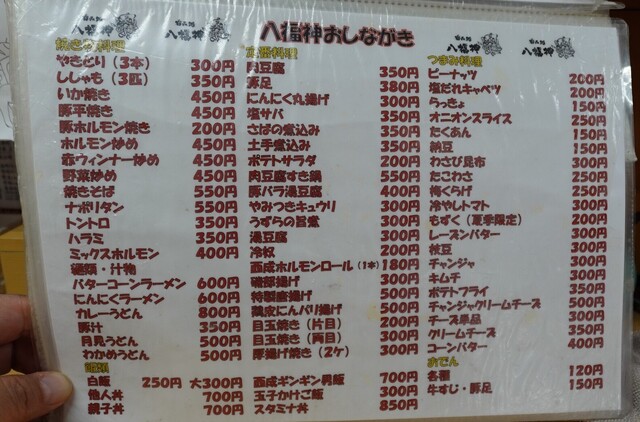 八福神おしながき
八福神
八福神
やきとり（3本） 300円
ししゃも（3匹） 350円
いか焼き 450円
豚平焼き 450円
豚ホルモン焼き 200円
ホルモン炒め 450円
赤ウィンナー炒め 450円
野菜炒め 450円
焼きそば 550円
ナポリタン 550円
トントロ 350円
ハラミ 350円
ミックスホルモン 400円
麺類・汁物
バターコーンラーメン 600円
にんにくラーメン 600円
カレーうどん 800円
豚汁 350円
月見うどん 500円
わかめうどん 500円
飯類
白飯 250円 大300円
他人丼 700円
親子丼 700円
定番料理
肉豆腐 350円
豚足 380円
にんにく丸揚げ 300円
塩サバ 350円
さばの煮込み 350円
土手煮込み 350円
ポテトサラダ 350円
肉豆腐すき鍋 550円
豚バラ湯豆腐 400円
やみつきキュウリ 300円
うずらの旨煮 300円
湯豆腐 300円
冷奴 200円
西成ホルモンロール（1本）180円
磯部揚げ 300円
特製唐揚げ 500円
鶏皮にんパリ揚げ 350円
目玉焼き（片目） 200円
目玉焼き（両目） 300円
厚揚げ焼き（2ケ） 300円
西成ギンギン男飯 700円
玉子かけご飯 300円
スタミナ丼 850円
八福神
八福神
つまみ料理
ピーナッツ 200円
塩だれキャベツ 200円
らっきょ 150円
オニオンスライス 250円
たくあん 150円
納豆 150円
わさび昆布 300円
たこわさ 250円
梅くらげ 250円
冷やしトマト 300円
もずく（夏季限定） 200円
レーズンバター 300円
枝豆 300円
チャンジャ 300円
キムチ 300円
ポテトフライ 350円
チャンジャクリームチーズ 500円
チーズ単品 200円
クリームチーズ 350円
コーンバター 400円
おでん
各種 120円
牛すじ・豚足 150円